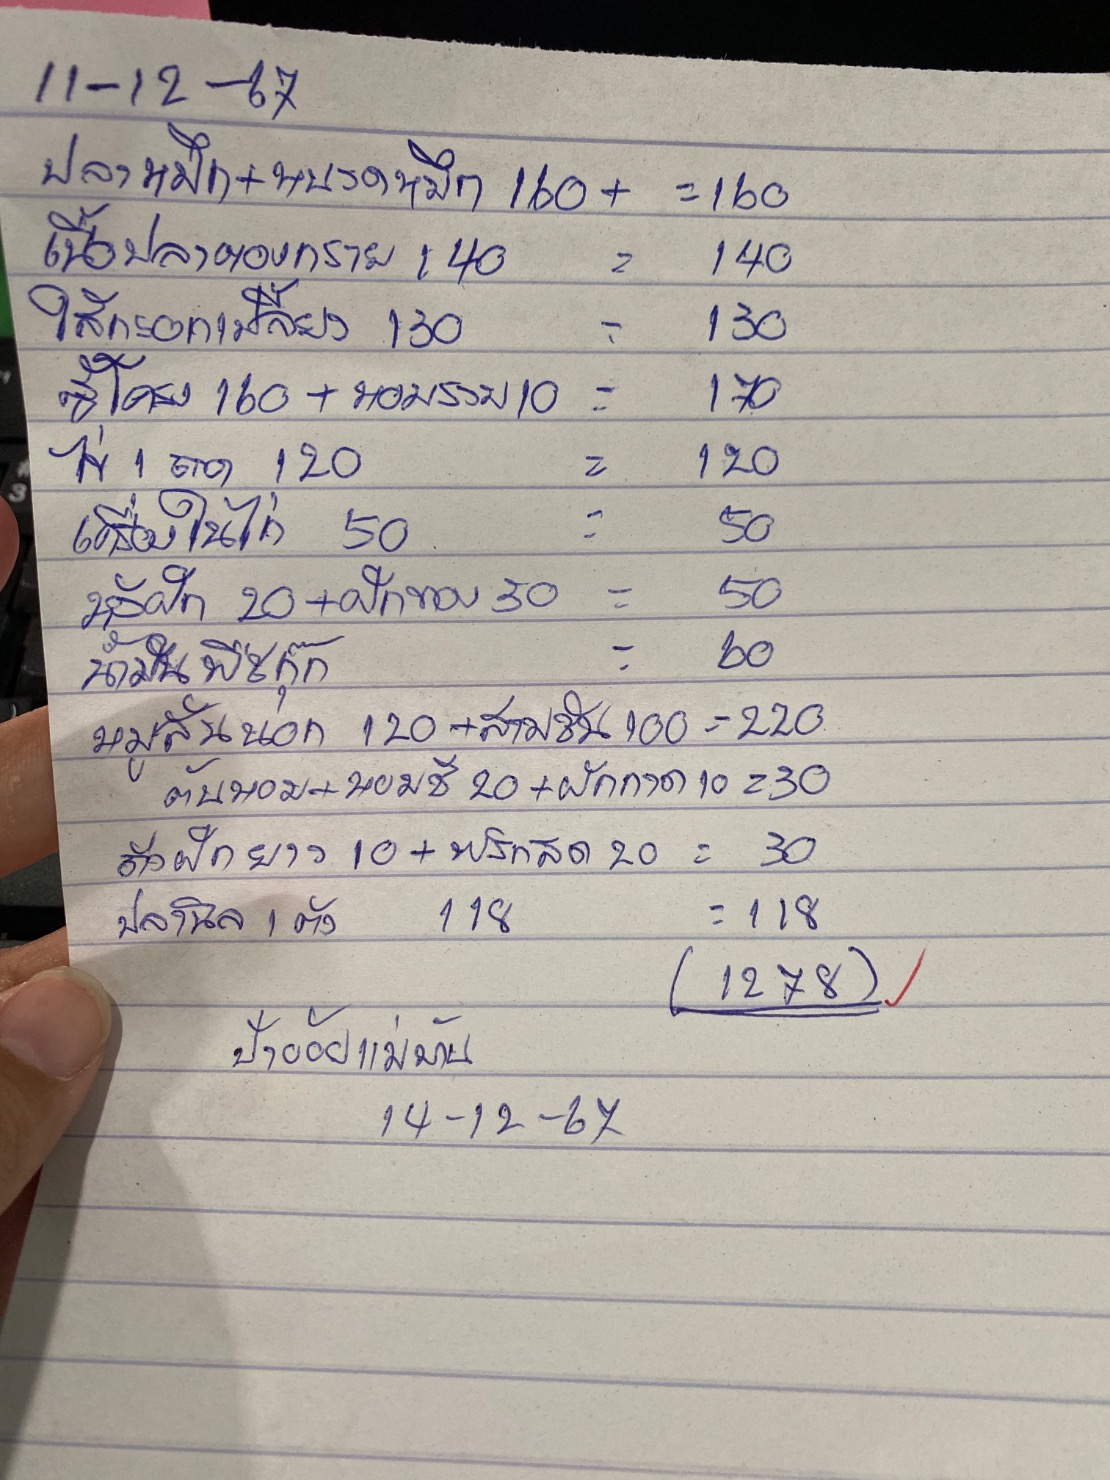 11-12-67
ปลาหมึก+หนวดหมึก 160+ =160
เนื้อปลาตองกราย 140 = 140
ไส้กรอกเปลี้ยว 130 = 130
ซี่โครง 160 + หอมรวม 10 = 170
ไข่ 1 ถาด 120 = 120
เครื่องในไก่ 50 = 50
20 + ฝักทอง 30 = 50
น้ำมันพืชกุ๊ก = 60
หมูสันนอก 120 +สามชั้น 100 = 220
ต้นหอม+หอมชี 20 +ผักกาด 10 = 30
ถั่วฝักยาว 10 + พริกสด 20 = 30
ปลานิล 1 ตัว 118 = 118
(1278)
ป้าย้อยแม่บ้าน
14-12-67